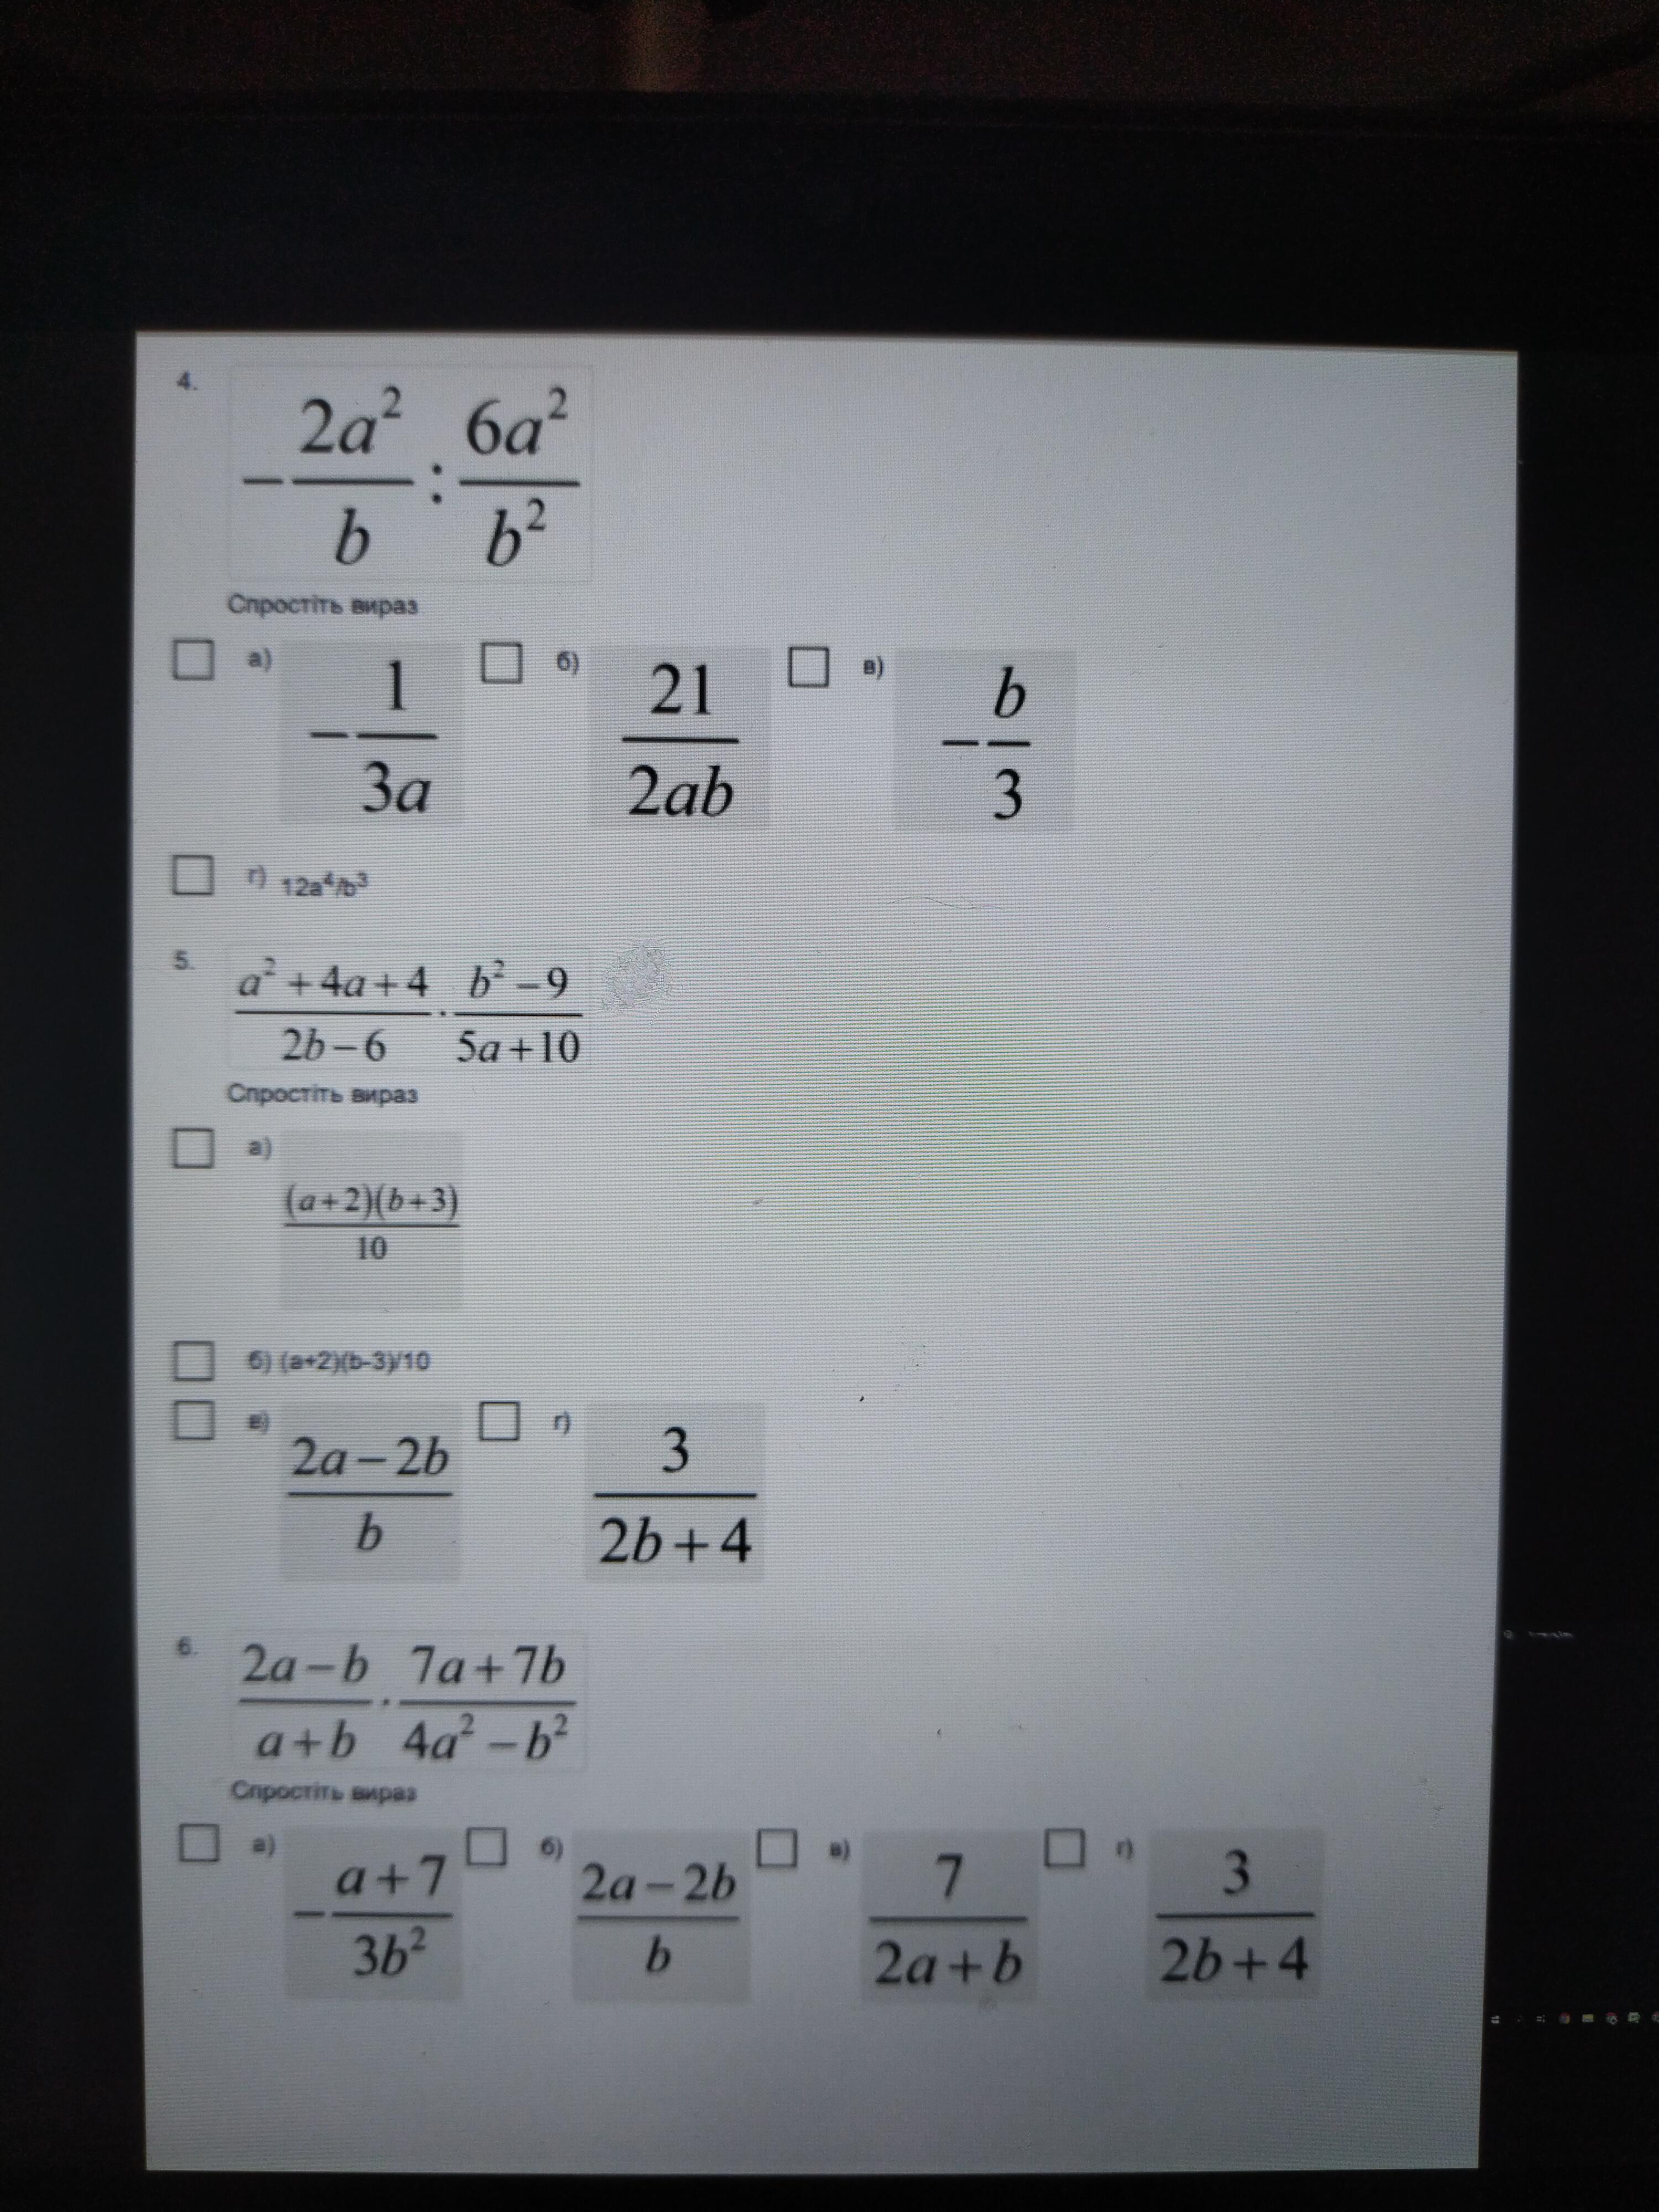 4. -2a²/b : 6a²/b²
Спростіть вираз
а) -1/3a б) 21/2ab в) -b/3
г) 12a⁴/b³
5. a² + 4a + 4/2b - 6 · b² - 9/5a + 10
Спростіть вираз
а) (a+2)(b+3)/10
б) (a+2)(b-3)/10
в) 2a - 2b/b г) 3/2b + 4
6. 2a - b/a + b · 7a + 7b/4a² - b²
Спростіть вираз
а) -a + 7/3b² б) 2a - 2b/b в) 7/2a + b г) 3/2b + 4